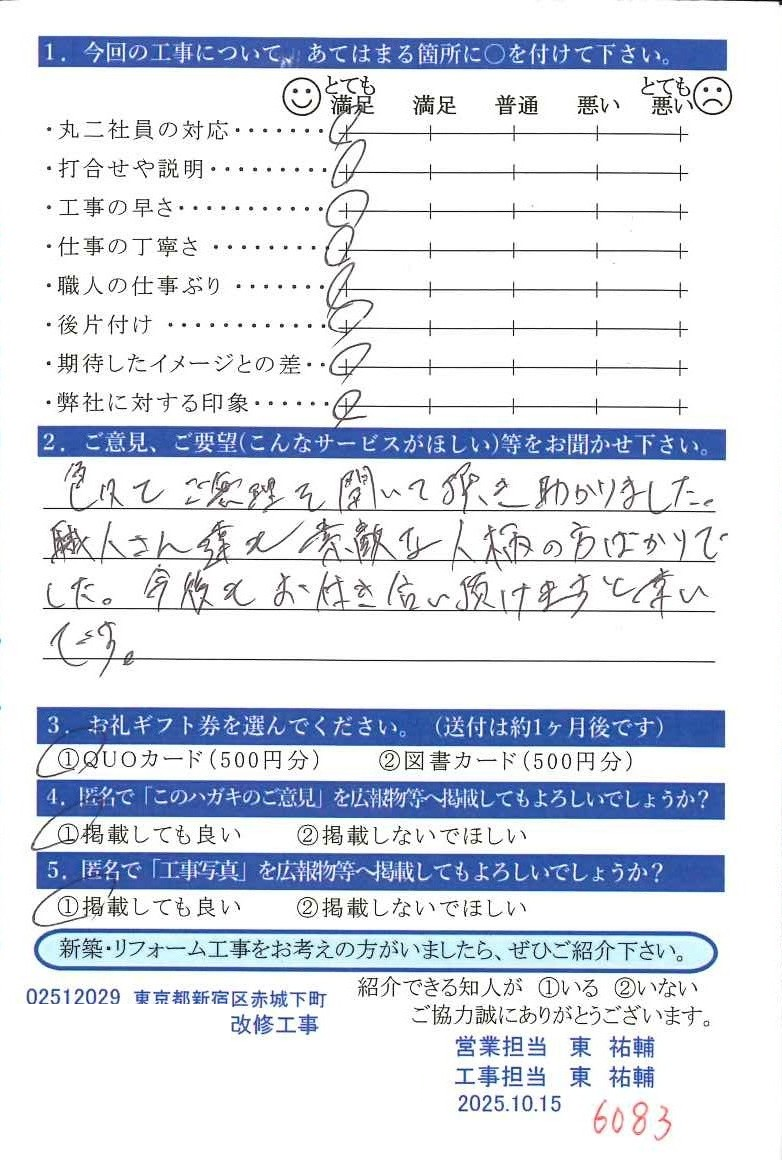 1. 今回の工事について、あてはまる箇所に○を付けて下さい。
とても満足 満足 普通 悪い とても悪い
・丸二社員の対応・・・・・・・
・打合せや説明・・・・・・・・・
・工事の早さ・・・・・・・・・・・
・仕事の丁寧さ・・・・・・・・・
・職人の仕事ぶり・・・・・・・
・後片付け・・・・・・・・・・・・
・期待したイメージとの差・・
・弊社に対する印象・・・・・・
2. ご意見、ご要望(こんなサービスがほしい)等をお聞かせ下さい。
色々とご無理を聞いて頂き助かりました。
職人さん達も素敵な人柄の方ばかりで
した。今後もお付き合い頂けますと幸い
です。
3. お礼ギフト券を選んでください。（送付は約1ヶ月後です）
①QUOカード(500円分) ②図書カード(500円分)
4. 匿名で「このハガキのご意見」を広報物等へ掲載してもよろしいでしょうか?
①掲載しても良い ②掲載しないでほしい
5. 匿名で「工事写真」を広報物等へ掲載してもよろしいでしょうか?
①掲載しても良い ②掲載しないでほしい
新築・リフォーム工事をお考えの方がいましたら、ぜひご紹介下さい。
紹介できる知人が ①いる ②いない
ご協力誠にありがとうございます。
02512029 東京都新宿区赤城下町
改修工事
営業担当 東 祐輔
工事担当 東 祐輔
2025.10.15
6083